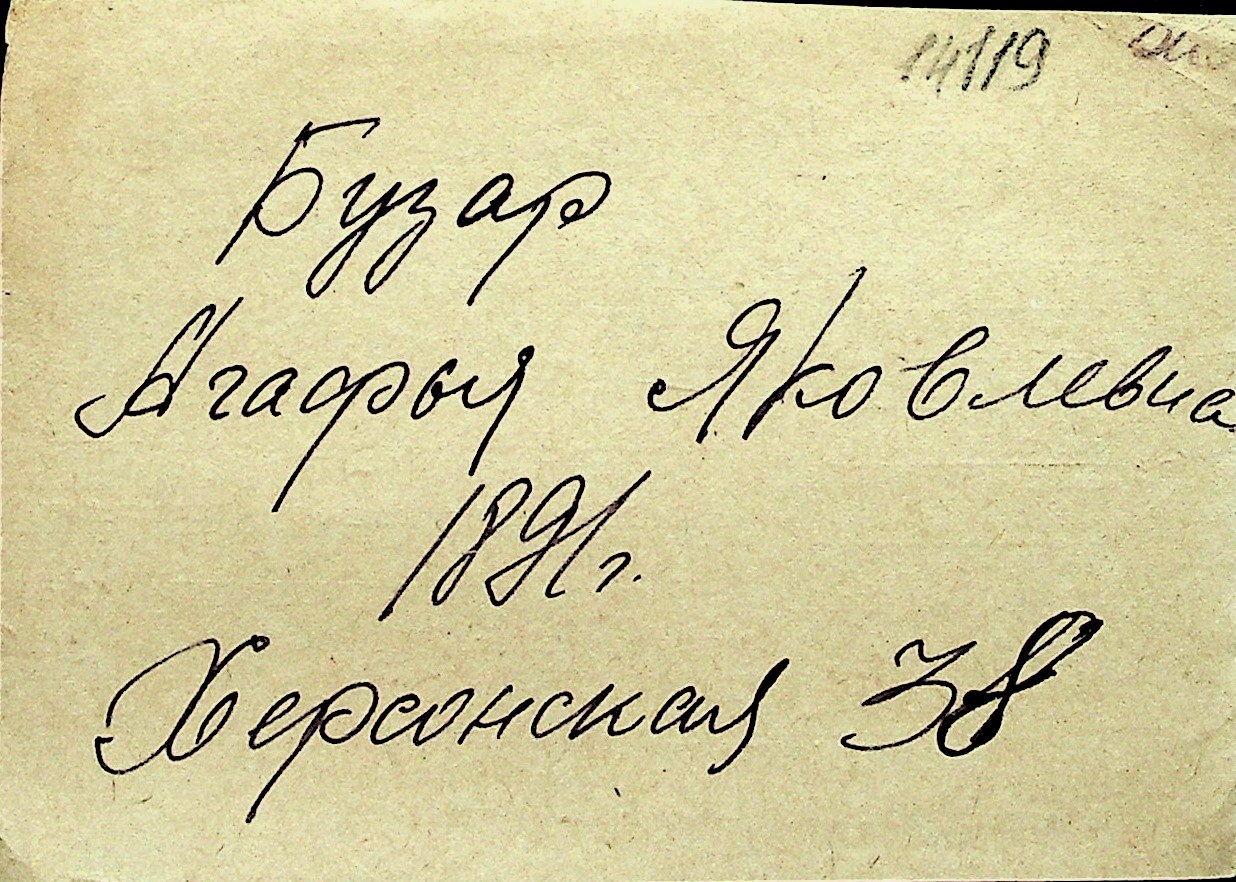 14119
Бузар
Агафья Яковлевна
1891г.
Херсонская 38